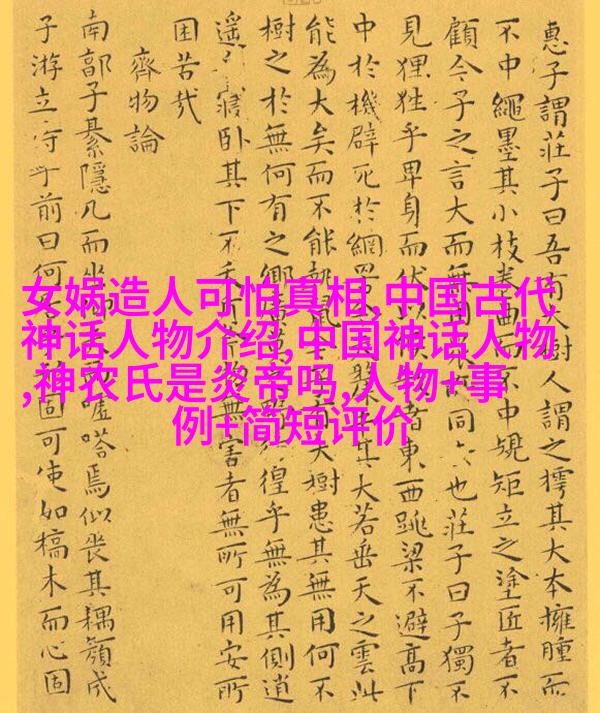 惠子謂莊子曰吾有大樹人謂之樗其大本擁腫而
不中繩墨其小枝卷曲而不中規矩立之塗匠者不
顧今子之言大而無用同也莊子曰子獨不
見狸狌乎卑身而伏以候者東西跳梁不避高下
中於機辟死於網罟其大若垂天之雲此
能為大矣而不能執鼠大樹患其無用何不
樹之於無何有之鄉徨乎無為其側逍
遙寢卧其下不夭無害者無所可用安所
困苦哉
齊物論
南郭子綦隱几而坐噓嗒焉似喪其耦顏成
子游立侍乎前曰何固可使如槁木而心固
女娲造人可怕真相,中国古代
神话人物介绍,中国神话人物
,神农氏是炎帝吗,人物+事
例+简短评价